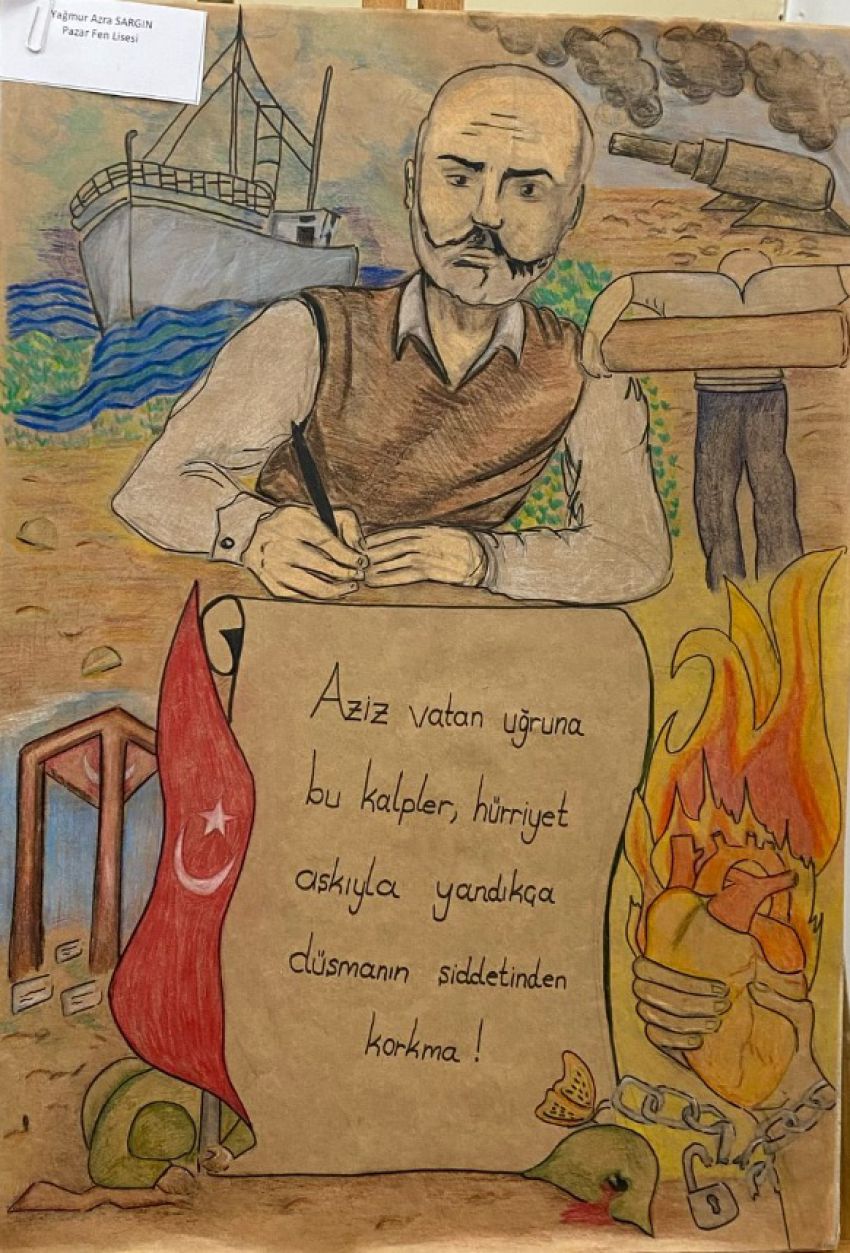 Yağmur Azra SARGIN
Pazar Fen Lisesi
Aziz vatan uğruna
bu kalpler, hürriyet
askıyla yandıkça
düsmanın siddetinden
korkma !